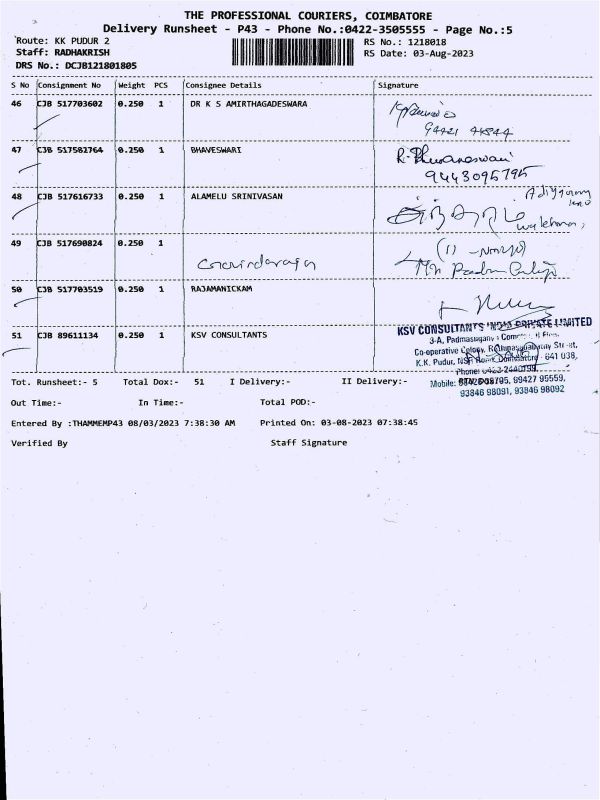 THE PROFESSIONAL COURIERS, COIMBATORE
Delivery Runsheet - P43 - Phone No.:0422-3505555 - Page No.:5
Route: KK PUDUR 2 RS No.: 1218018
Staff: RADHAKRISH RS Date: 03-Aug-2023
DRS No.: DCJB121801805
S No Consignment No Weight PCS Consignee Details Signature
46 CJB 517703602 0.250 1 DR K S AMIRTHAGADESWARA
94421 44844
47 CJB 517582764 0.250 1 BHAVESWARI R. Bhuvaneswari
9443095795
48 CJB 517616733 0.250 1 ALAMELU SRINIVASAN
49 CJB 517690824 0.250 1
Govindaraja
50 CJB 517703519 0.250 1 RAJAMANICKAM
51 CJB 89611134 0.250 1 KSV CONSULTANTS
KSV CONSULTANTS INDIA PRIVATE LIMITED
3-A, Padmasugam,
Co-operative Colony,
K.K. Pudur, 641 038,
Phone: 0422-2440799,
Mobile: 99427 95559,
93846 98091, 93846 98092
Tot. Runsheet:- 5 Total Dox:- 51 I Delivery:- II Delivery:-
Out Time:- In Time:- Total POD:-
Entered By :THAMMEMP43 08/03/2023 7:38:30 AM Printed On: 03-08-2023 07:38:45
Verified By Staff Signature